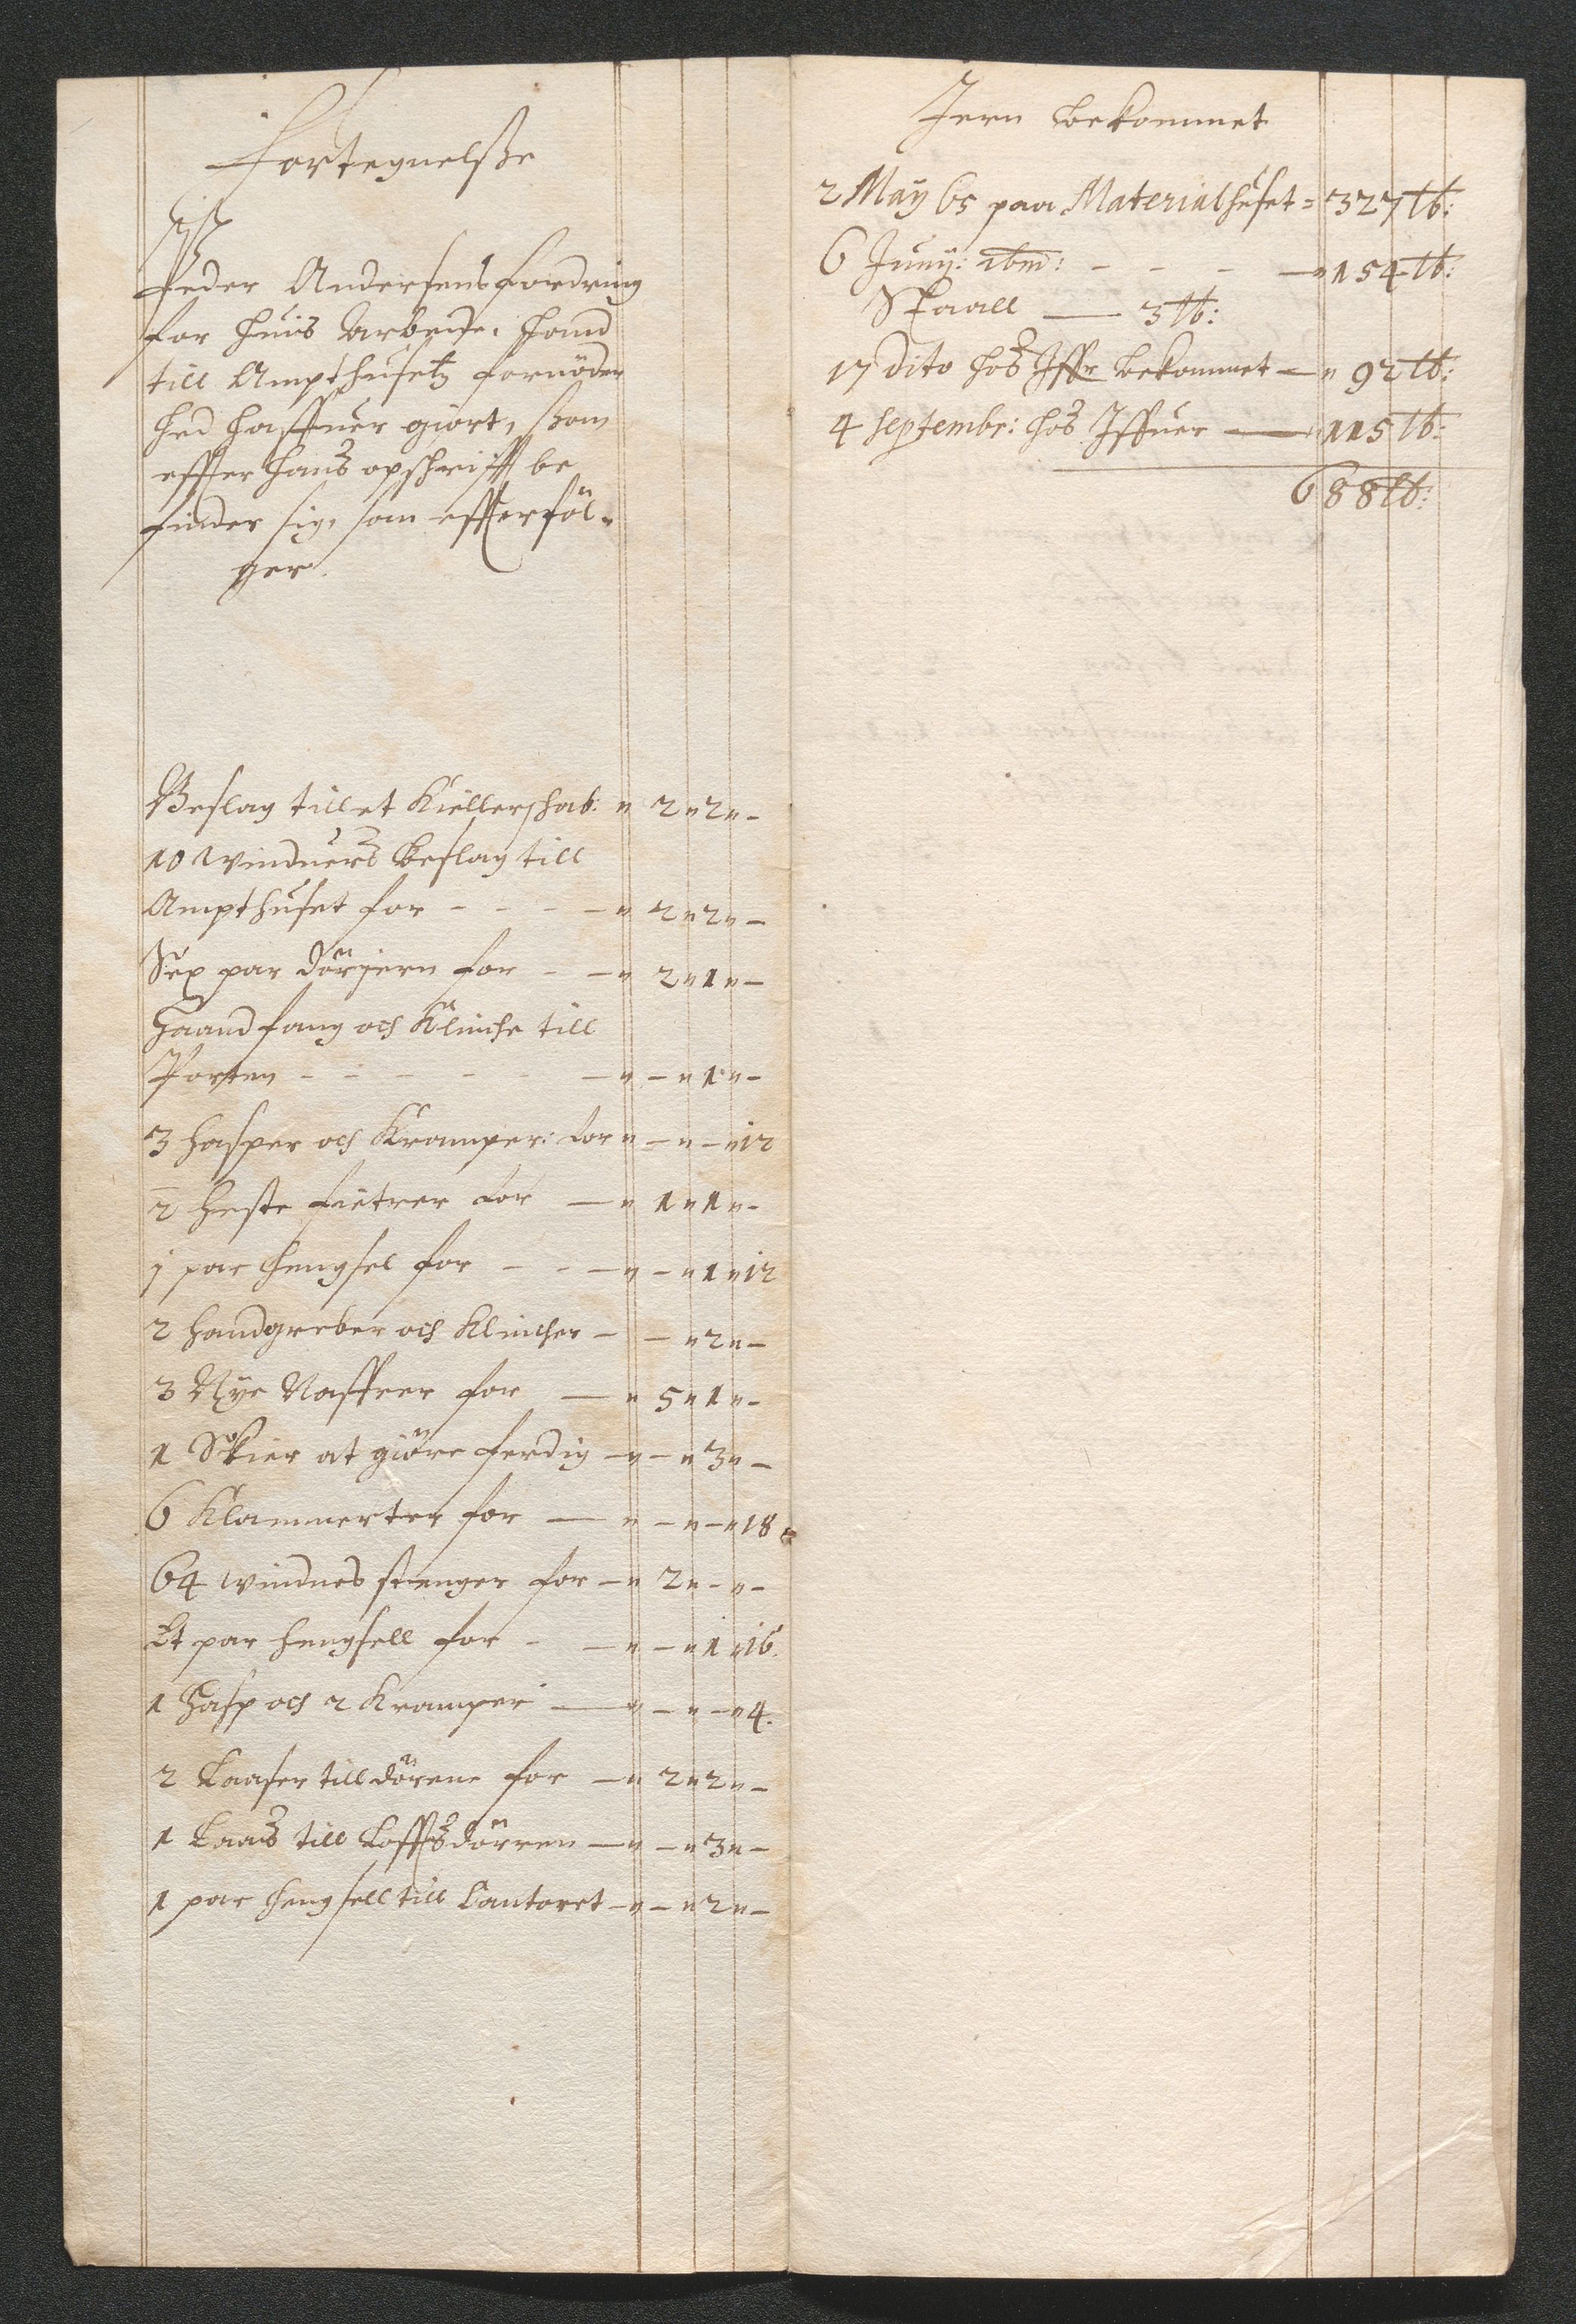 Fortegnelsse
Peder Andersens fordring
for huis Arbeide, hand
till Ampthusetz fornöden
hed haffuer giort, som
effter hans opschrifft be
finder sig, som effterföl-
ger.
Beslag till et Kiellerschab: " 2 " 2 " -
10 Winduers beslag till
Ampthuset for - - - - " 2 " 2 " -
Sex par dörjern for - - " 2 " 1 " -
Haandfang och Klinche till
Porten - - - - - - " - " 1 " -
3 hasper och Kramper: for " - " - " 12
2 heste fietrer for - " 1 " 1 " -
1 par hengsel for - - - " - " 1 " 12
2 handgreber och Klincher - - " 2 " -
3 Nye Naffrer for - " 5 " 1 " -
1 Skier at giöre ferdig - " - " 3 " -
6 Klammerter for - " - " - " 18 =
64 windues stenger for - " 2 " - " -
Et par hengsell for - - " - " 1 " 16.
1 Hasp och 2 Kramper - " - " - " 4.
2 Laaser till dörene for - " 2 " 2 " -
1 Laas till Lofftsdörren - " - " 3 " -
1 par hengsell till Cantoret - " - " 2 " -
Jern bekommet
2 May 65 paa Materialhuset = 327 lb:
6 Junij: ibm: - - - - " 154 lb:
Staall - 3 lb:
17 dito hos Iffr bekommet - " 92 lb:
4 Septembr: hos Iffuer - " 115 lb:
688 lb: